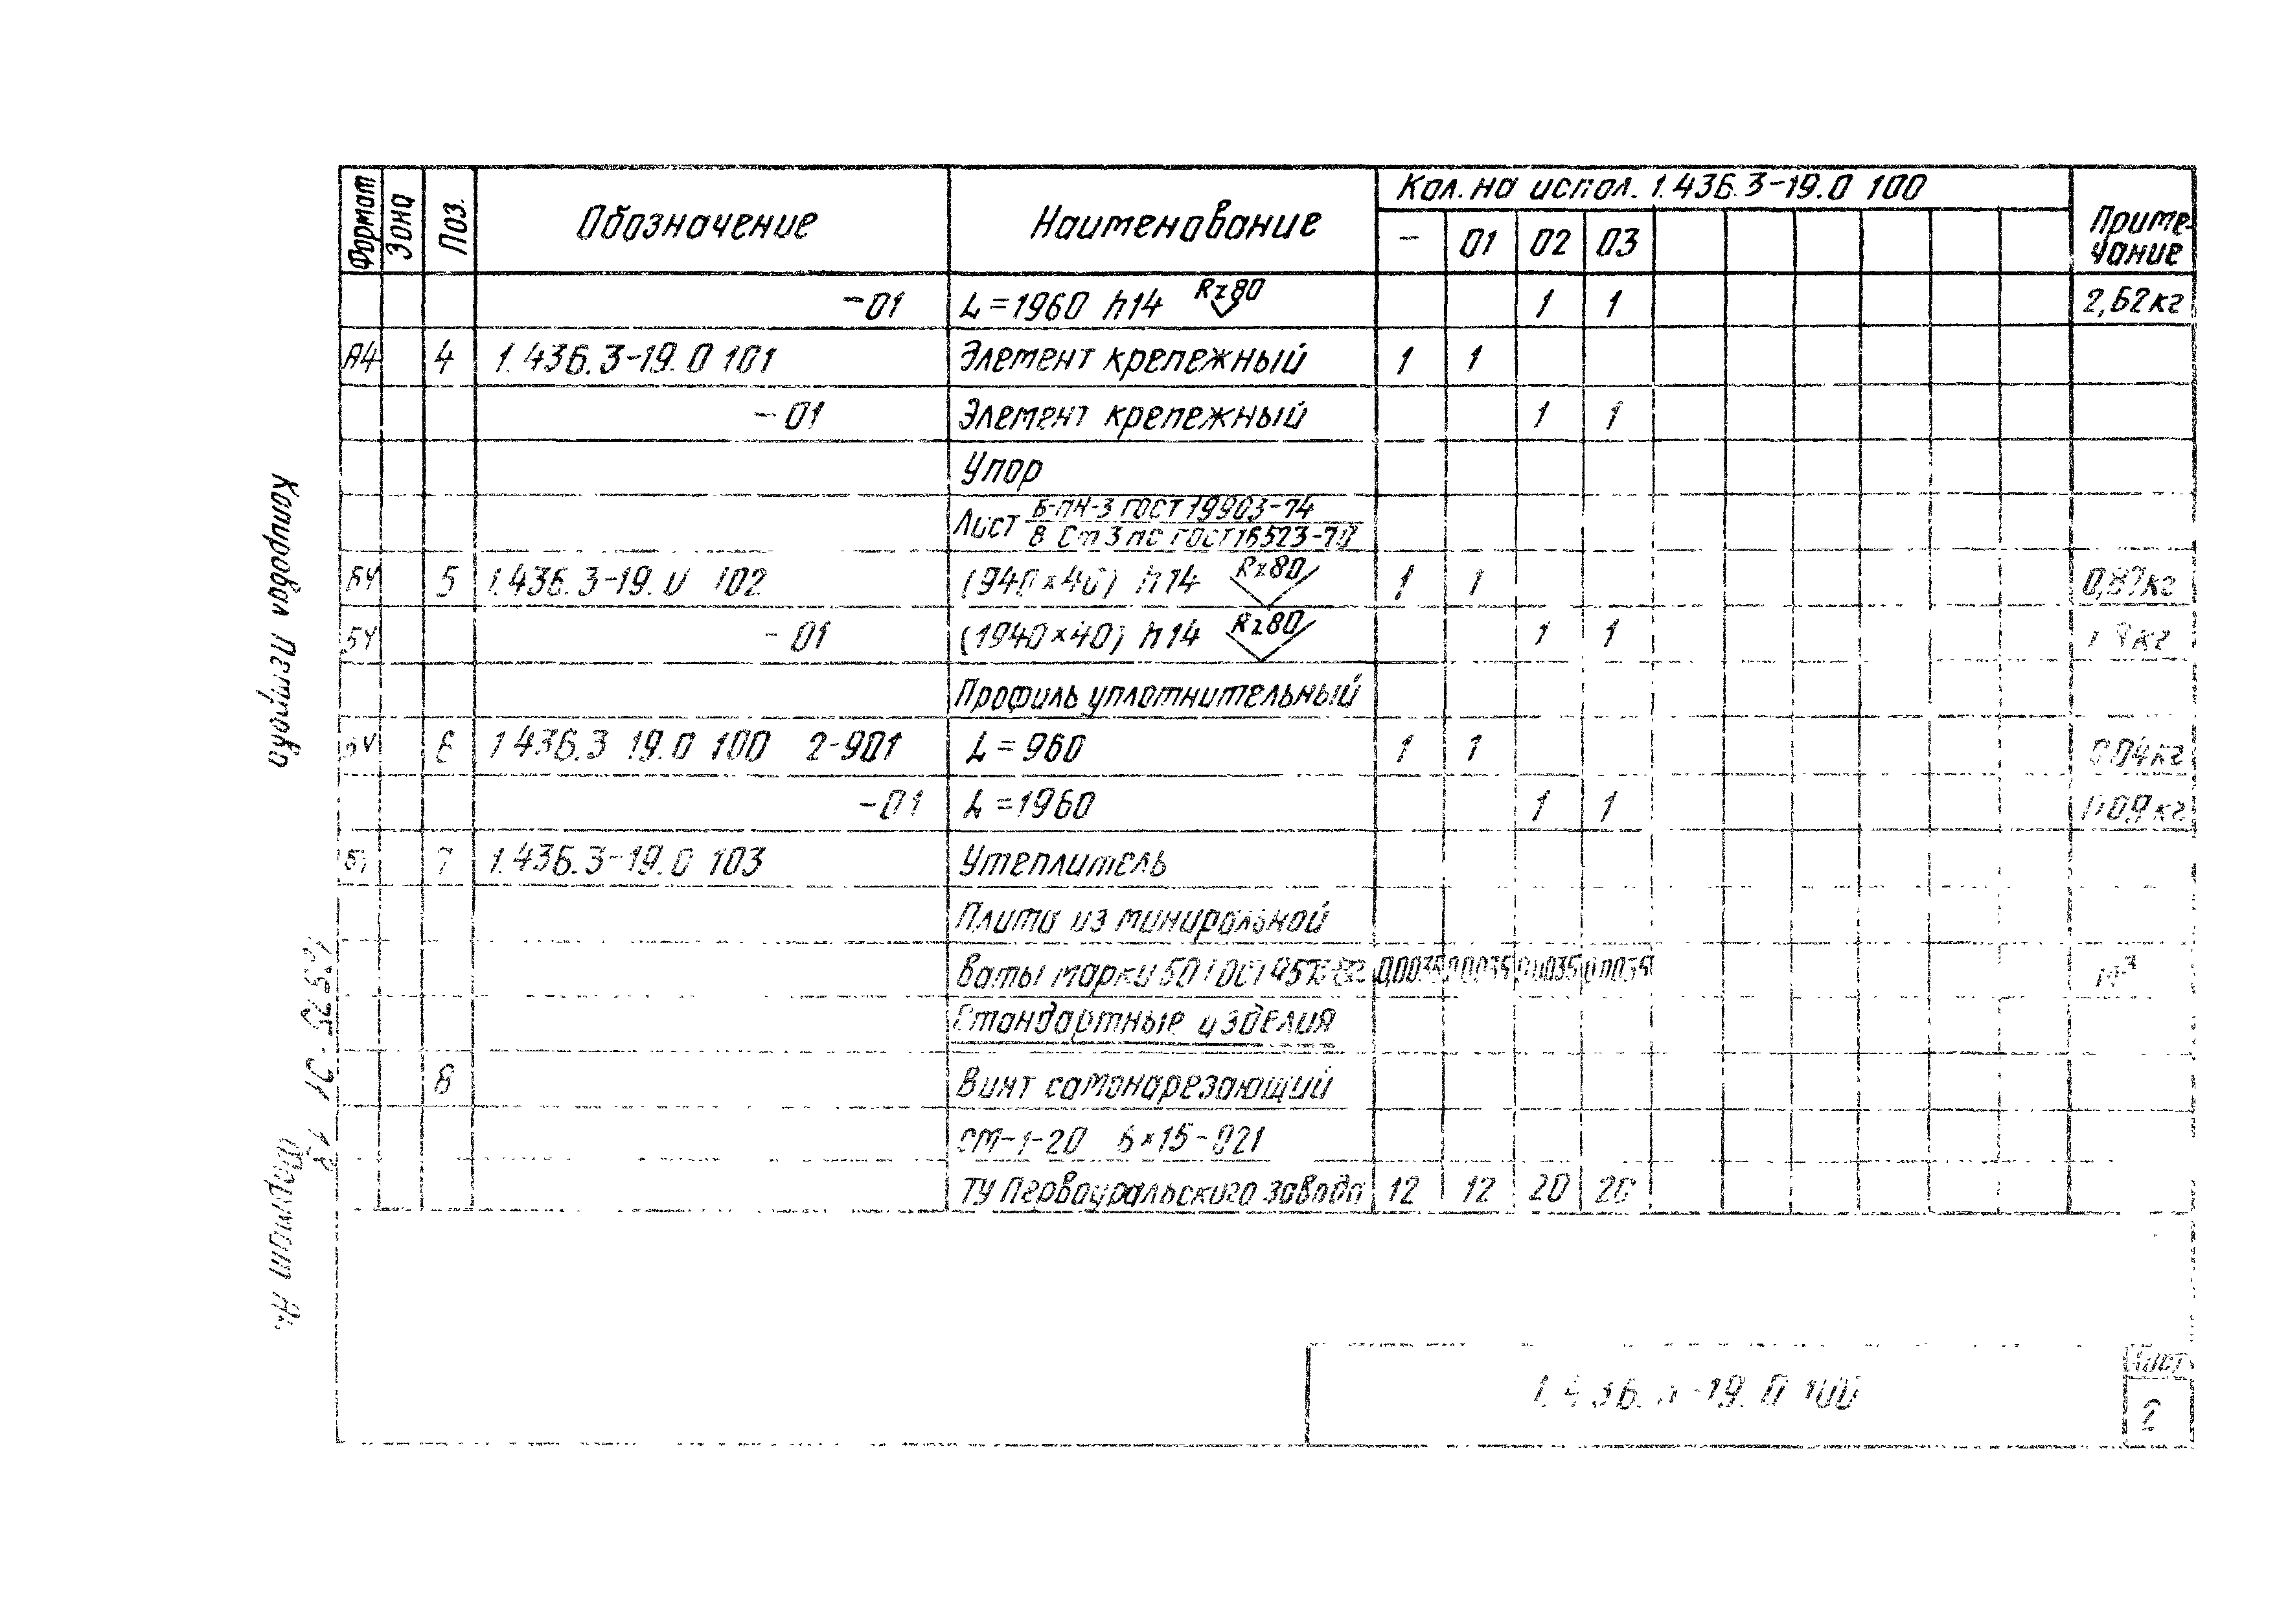 Формат Зона Поз. Обозначение Наименование Кол. на испол. 1.436.3-19.0 100 Приме-чание
- 01 02 03
-01 L=1960 h14 Rz80 1 1 2,62кг
А4 4 1.436.3-19.0 101 Элемент крепежный 1 1
-01 Элемент крепежный 1 1
Упор
Лист Б-ПН-3 ГОСТ 19903-74
В Ст3пс ГОСТ 16523-70
БЧ 5 1.436.3-19.0 102 (940×40) h14 Rz80 1 1 0,87кг
БЧ -01 (1940×40) h14 Rz80 1 1
Профиль уплотнительный
БЧ 6 1436.3 19.0 100 2-901 L=960 1 1 0.04кг
-01 L=1960 1 1 0.09кг
7 1.436.3-19.0 103 Утеплитель
Плита из миниральной
ваты марки 50 ГОСТ 9573-82 0,0035 0,0035 0,0035 0,0035 м³
Стандартные изделия
8 Винт самонарезающий
СМ-1-20 6×15-021
ТУ Первоуральского завода 12 12 20 20
1.436.3-19.0 100
Лист
2
Копировал Петрова
Формат